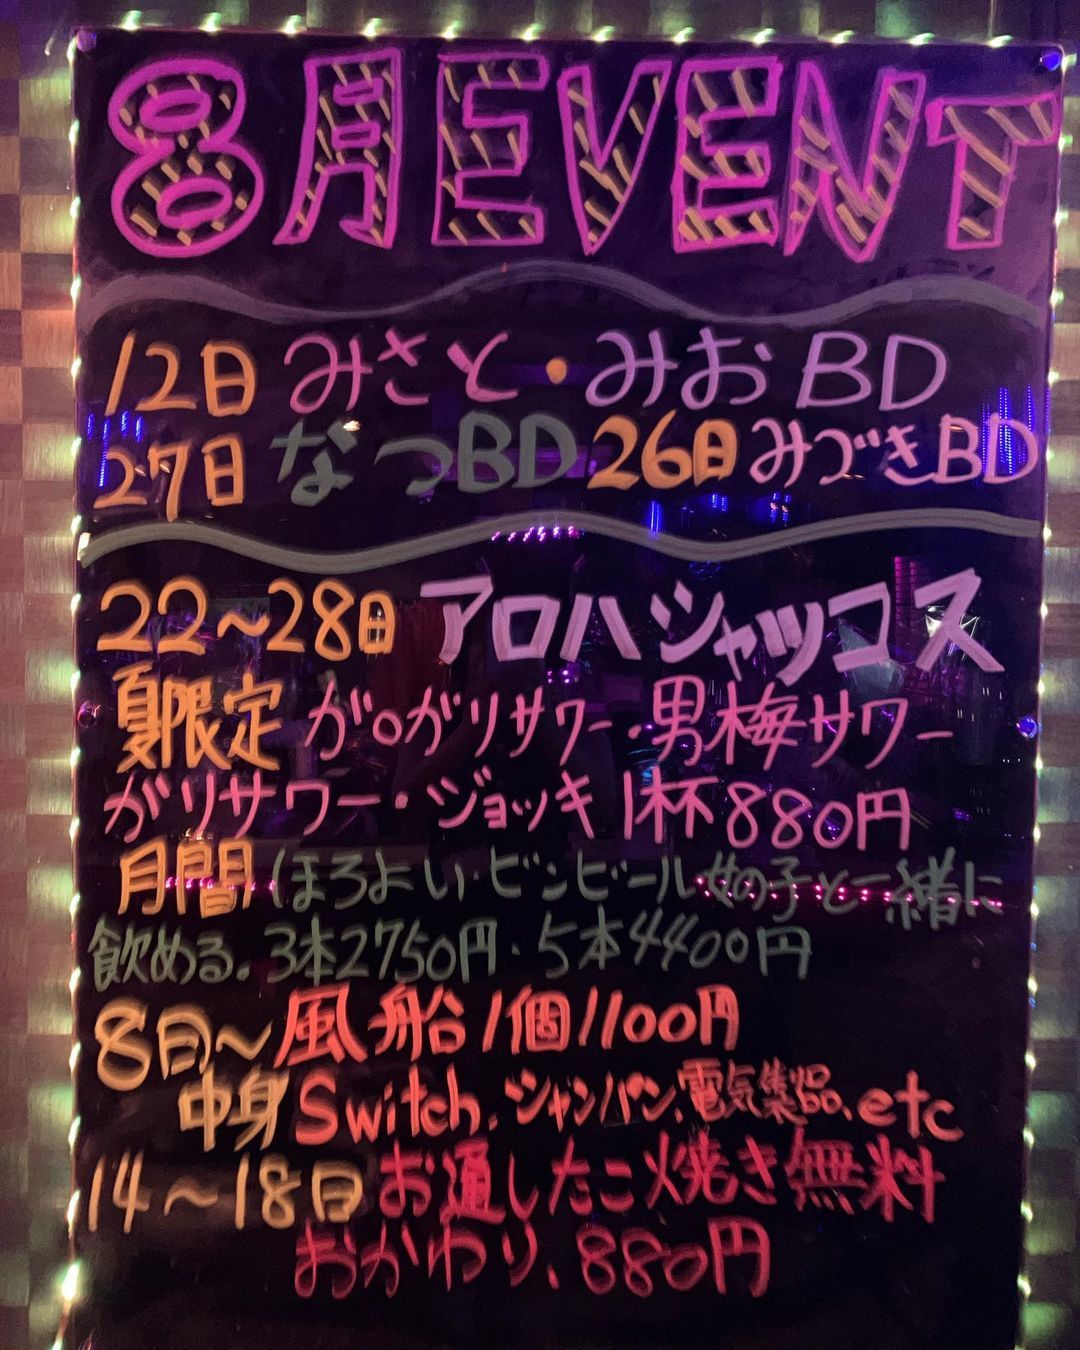 8月EVENT
12日 みさと・みおBD
27日 なつBD 26日 みづきBD
22〜28日 アロハシャツコス
夏限定 がりがりサワー・男梅サワー
ガリサワー・ジョッキ1杯880円
月間 ほろよい・ビンビール女の子と一緒に
飲める。3本2750円・5本4400円
8日〜風船1個1100円
中身Switch、シャンパン、電気製品、etc
14〜18日お通したこ焼き無料
おかわり、880円